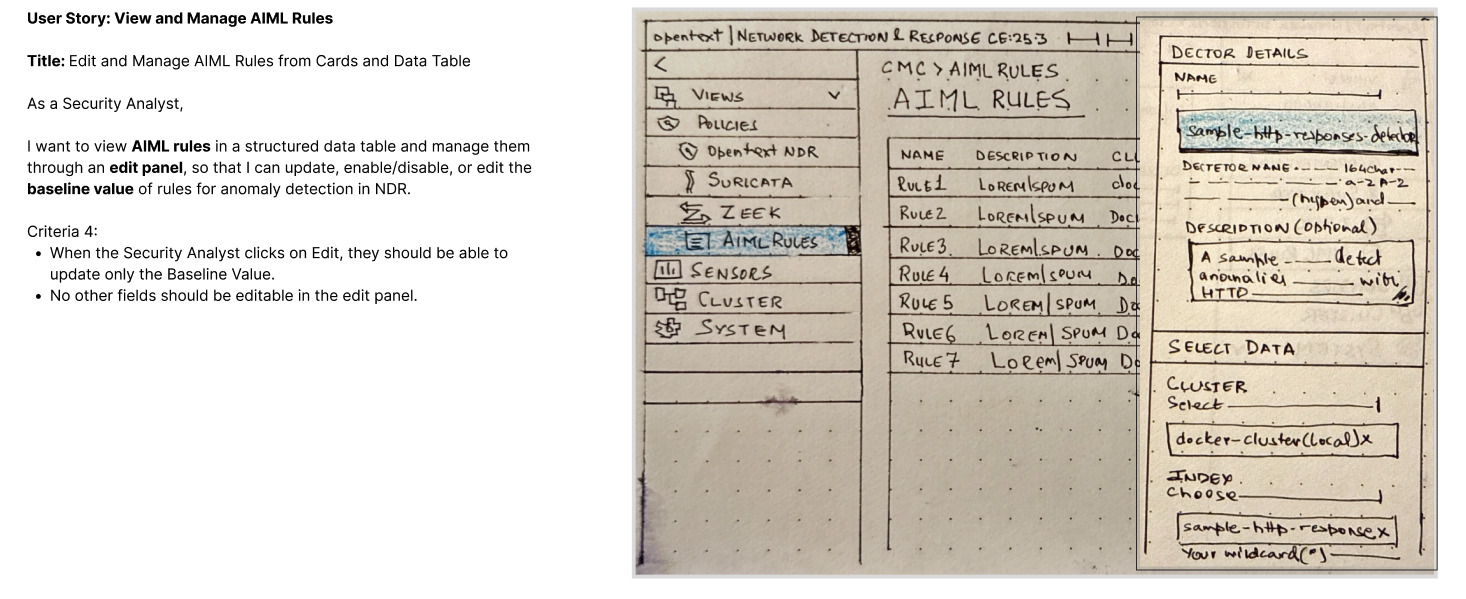 User Story: View and Manage AIML Rules
Title: Edit and Manage AIML Rules from Cards and Data Table
As a Security Analyst,
I want to view AIML rules in a structured data table and manage them
through an edit panel, so that I can update, enable/disable, or edit the
baseline value of rules for anomaly detection in NDR.
Criteria 4:
• When the Security Analyst clicks on Edit, they should be able to
update only the Baseline Value.
• No other fields should be editable in the edit panel.
opentext | NETWORK DETECTION & RESPONSE CE:25.3
<
VIEWS
POLICIES
Opentext NDR
SURICATA
ZEEK
AIML RULES
SENSORS
CLUSTER
SYSTEM
CMC > AIML RULES
AIML RULES
NAME DESCRIPTION CLU
RULE1 LOREM|SPUM doc
RULE2 LOREM|SPUM Doc
RULE3 LOREM|SPUM Doc
RULE4 LOREM|SPUM Do
RULE5 LOREM|SPUM Do
RULE6 LOREM|SPUM Do
RULE7 LOREM|SPUM Do
DECTOR DETAILS
NAME
sample-http-responses-detector
DECTETOR NAME 164char
a-2 A-2
(hypen) and
DESCRIPTION (optional)
A sample detect
anomalies with
HTTP
SELECT DATA
CLUSTER
Select
docker-cluster(local)x
INDEX
Choose
sample-http-response x
Your wildcard(*)